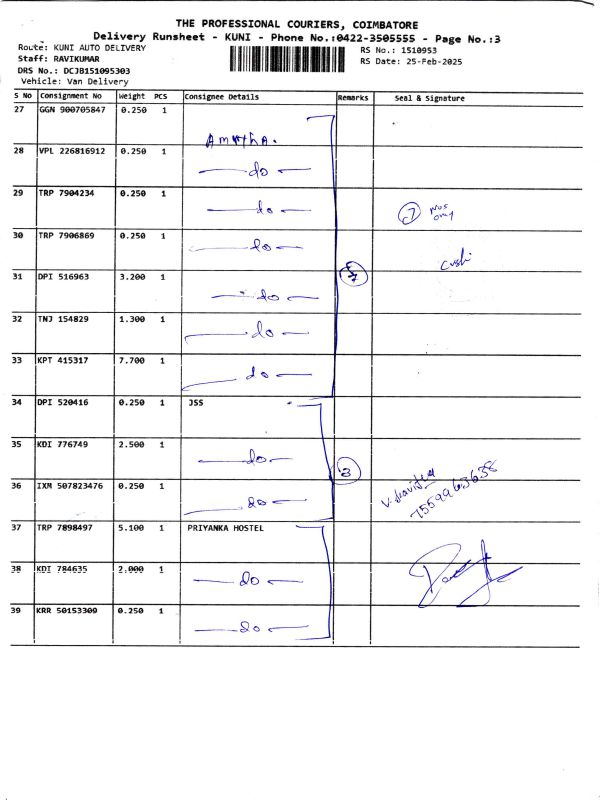 THE PROFESSIONAL COURIERS, COIMBATORE
Delivery Runsheet - KUNI - Phone No.:0422-3505555 - Page No.:3
Route: KUNI AUTO DELIVERY RS No.: 1510953
Staff: RAVIKUMAR RS Date: 25-Feb-2025
DRS No.: DCJB151095303
Vehicle: Van Delivery
S No Consignment No Weight PCS Consignee Details Remarks Seal & Signature
27 GGN 900705847 0.250 1 Amutha.
28 VPL 226816912 0.250 1 do
29 TRP 7904234 0.250 1 do 7 nos only
30 TRP 7906869 0.250 1 do
31 DPI 516963 3.200 1 do 7
32 TNJ 154829 1.300 1 do
33 KPT 415317 7.700 1 do
34 DPI 520416 0.250 1 JSS
35 KDI 776749 2.500 1 do 3
36 IXM 507823476 0.250 1 do 7559963638
37 TRP 7898497 5.100 1 PRIYANKA HOSTEL
38 KDI 784635 2.000 1 do
39 KRR 50153309 0.250 1 do